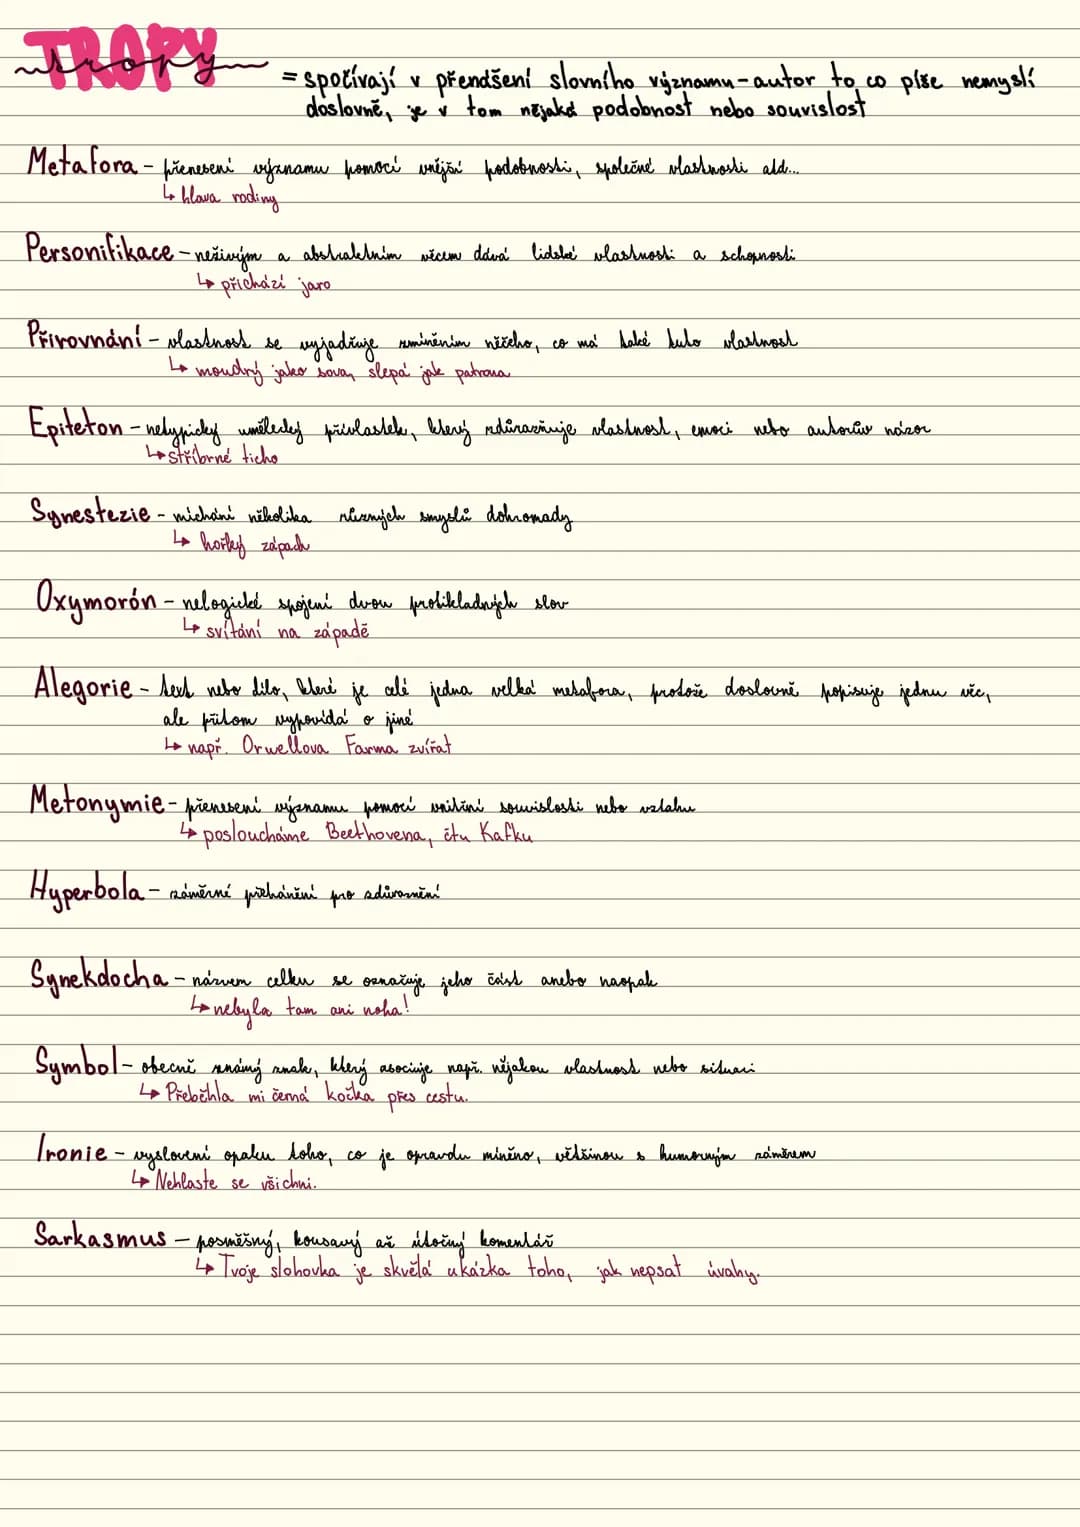 TROPY
tropy
= spočívají v přendšení slovního významu - autor to co píše nemyslí
doslovně, je v tom nějaká podobnost nebo souvislost
Metafora - přenesení významu pomocí vnější podobnosti, společné vlastnosti atd...
↳ hlava rodiny
Personifikace - neživým a abstraktním věcem dává lidské vlastnosti a schopnosti
↳ přichází jaro
Přirovnání - vlastnost se vyjadřuje zmíněním něčeho, co má také tuto vlastnost
↳ moudrý jako sova, slepá jak patrona
Epiteton - netypický umělecký přívlastek, který zdůrazňuje vlastnost, emoci nebo autorův názor
↳ stříbrné ticho
Synestezie - míchání několika různých smyslů dohromady
↳ hořký zápach
Oxymorón - nelogické spojení dvou protikladných slov
↳ svítání na západě
Alegorie - text nebo dílo, které je celé jedna velká metafora, protože doslovně popisuje jednu věc,
ale přitom vypovídá o jiné
↳ např. Orwellova Farma zvířat
Metonymie - přenesení významu pomocí vnitřní souvislosti nebo vztahu
↳ posloucháme Beethovena, čtu Kafku
Hyperbola - záměrné přehánění pro zdůraznění
Synekdocha - názvem celku se označuje jeho část anebo naopak
↳ nebyla tam ani noha!
Symbol - obecně známý znak, který asociuje např. nějakou vlastnost nebo situaci
↳ Přeběhla mi černá kočka přes cestu.
Ironie - vyslovení opaku toho, co je opravdu míněno, většinou s humorným záměrem
↳ Nehlaste se všichni.
Sarkasmus - posměšný, kousavý až útočný komentář
↳ Tvoje slohovka je skvělá ukázka toho, jak nepsat úvahy.